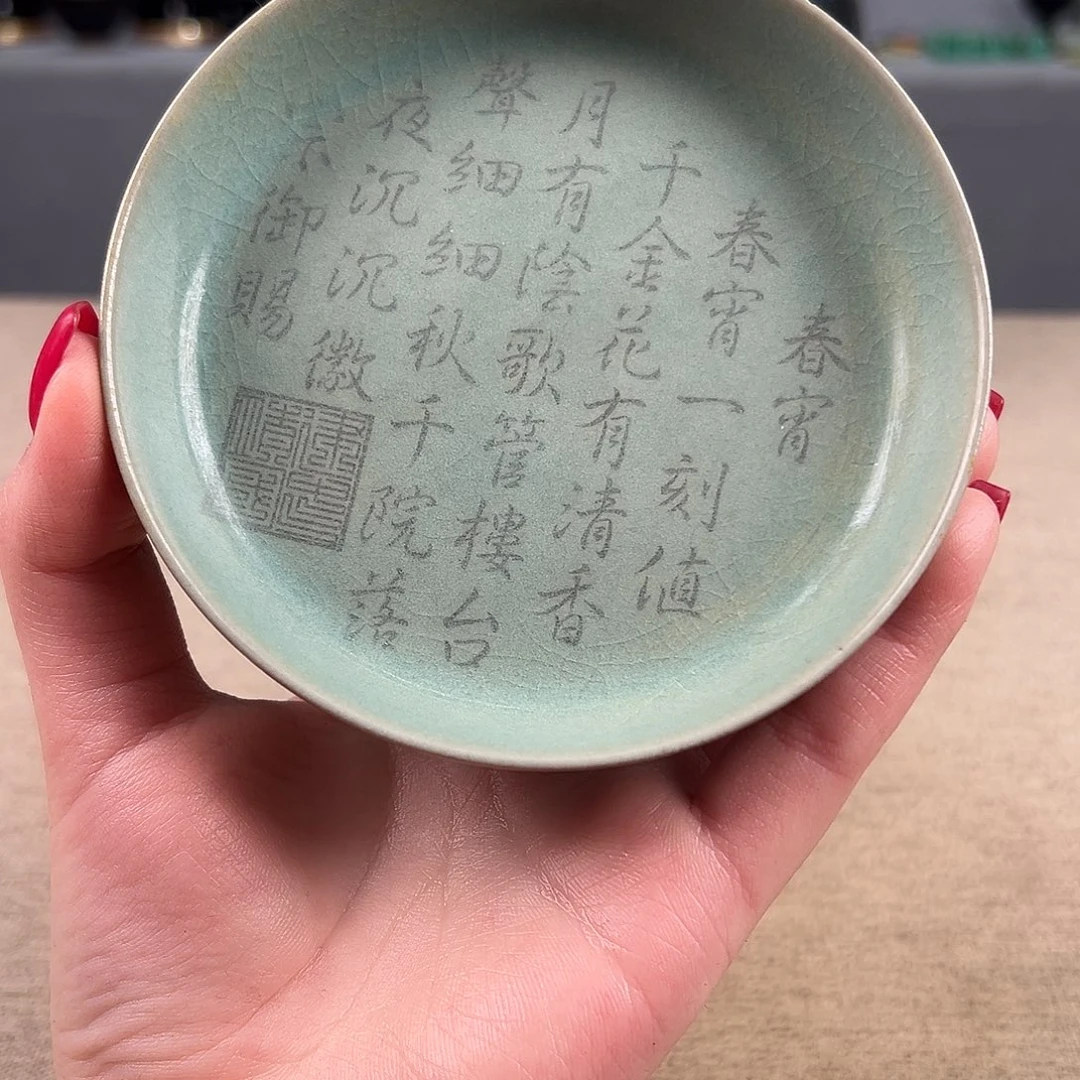 春宵
春宵一刻値
千金花有清香
月有陰歌管樓台
聲細細秋千院落
夜沉沉徽
宗御賜